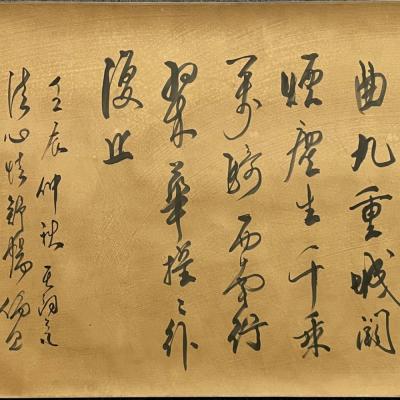 曲九重城闕
煙塵生千乘
萬騎西南行
翠華搖〻行
復止
壬辰仲秋
法心